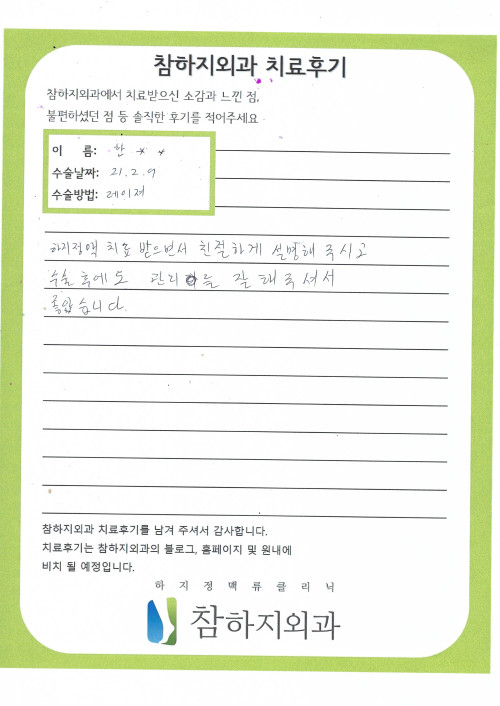 참하지외과 치료후기
참하지외과에서 치료받으신 소감과 느낀 점,
불편하셨던 점 등 솔직한 후기를 적어주세요
이 름: 한 * *
수술날짜: 21. 2. 9
수술방법: 레이져
하지정맥 치료 받으면서 친절하게 설명해 주시고
수술 후에도 관리를 잘 해 주셔서
좋았습니다.
참하지외과 치료후기를 남겨 주셔서 감사합니다.
치료후기는 참하지외과의 블로그, 홈페이지 및 원내에
비치 될 예정입니다.
하지정맥류클리닉
참하지외과